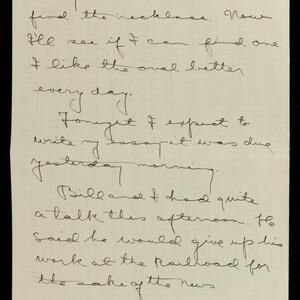 find the necklace. Now
I'll see if I can find one
I like the oval better
every day.
Tonight I expect to
write my essay it was due
yesterday morning.
Bill and I had quite
a talk this afternoon. He
said he would give up his
work at the Railroad for
the sake of the News